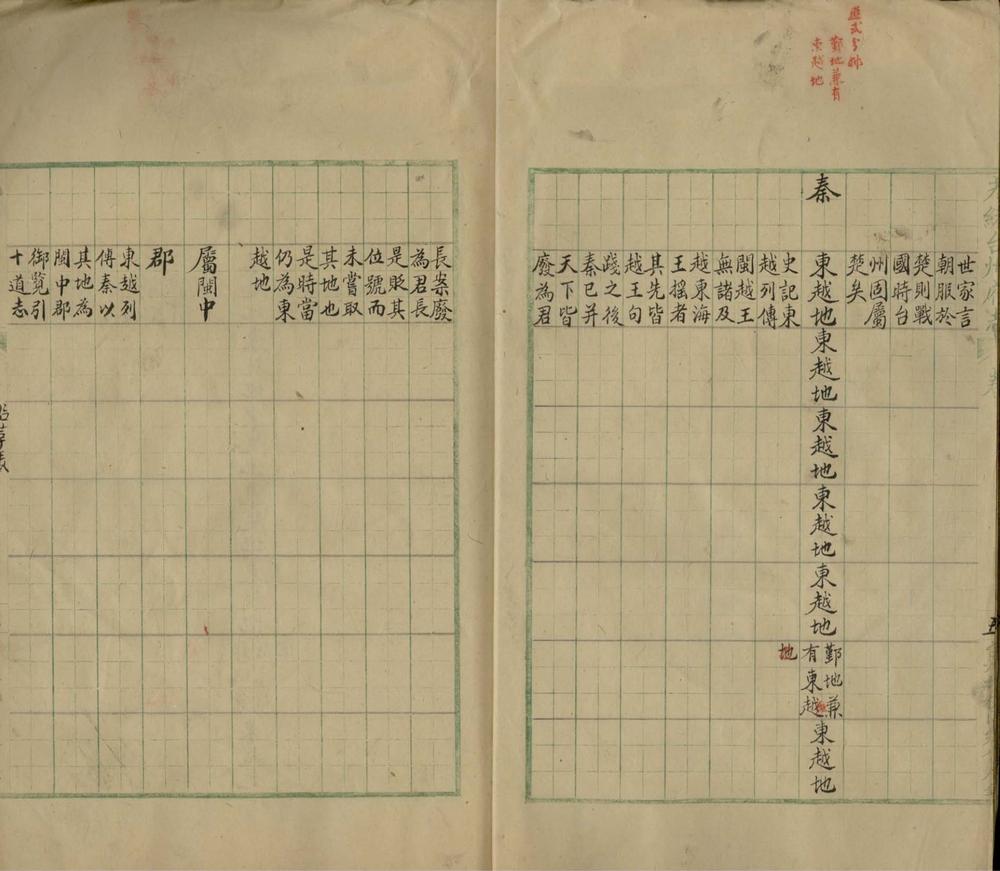 應武子朴
鄞地兼有
東越地
世家言
朝服於
楚則戰
國時台
州固屬
楚矣
秦
東越地
東越地
東越地
東越地
東越地
鄞地兼
有東越
地
東越地
史記東
越列傳
閩越王
無諸及
越東海
王搖者
其先皆
越王句
踐之後
秦已并
天下皆
廢為君
長案廢
為君長
是貶其
位號而
未嘗取
其地也
是時當
仍為東
越地
屬閩中
郡
東越列
傳秦以
其地為
閩中郡
御覽引
十道志